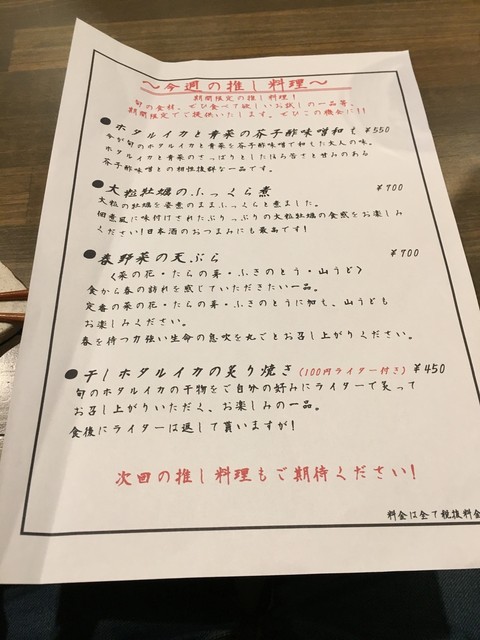 ～今週の推し料理～
期間限定の推し料理！
旬の食材、ぜひ食べて欲しいお試しの一品等、
期間限定でご提供いたします。ぜひこの機会に！！
●ホタルイカと青菜の芥子酢味噌和え ¥550
今が旬のホタルイカと青菜を芥子酢味噌で和えた大人の味。
ホタルイカと青菜のさっぱりとしたほろ苦さと甘みのある
芥子酢味噌との相性抜群な一品です。
●大粒牡蠣のふっくら煮 ¥700
大粒の牡蠣を姿煮のままふっくらと煮ました。
佃煮風に味付けされたぷりっぷりの大粒牡蠣の食感をお楽しみ
ください！日本酒のおつまみにも最高です！
●春野菜の天ぷら ¥700
〈菜の花・たらの芽・ふきのとう・山うど〉
食から春の訪れを感じていただきたい一品。
定番の菜の花・たらの芽・ふきのとうに加え、山うども
お楽しみください。
春を待つ力強い生命の息吹を丸ごとお召し上がりください。
●干しホタルイカの炙り焼き（100円ライター付き）¥450
旬のホタルイカの干物をご自分の好みにライターで炙って
お召し上がりいただく、お楽しみの一品。
食後にライターは返して貰いますが！
次回の推し料理もご期待ください！
料金は全て税抜料金